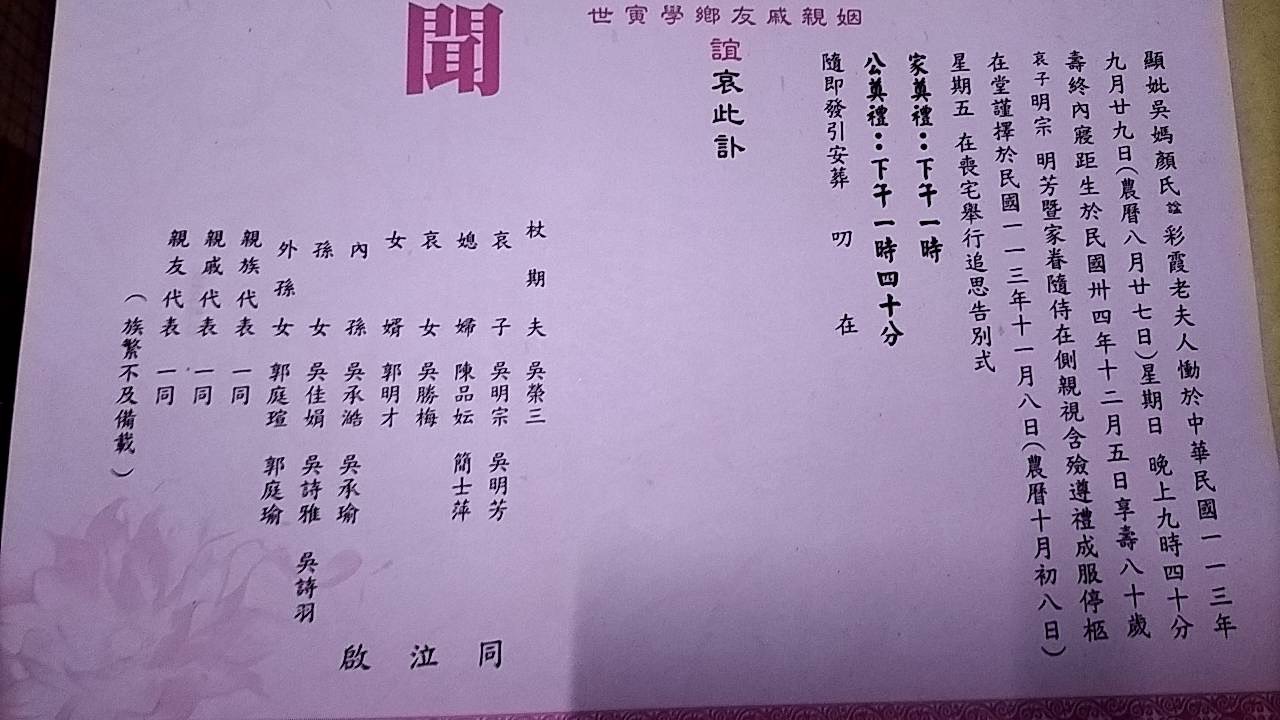 顯妣吳媽顏氏諡彩霞老夫人慟於中華民國一一三年
九月廿九日(農曆八月廿七日)星期日 晚上九時四十分
壽終內寢距生於民國卅四年十二月五日享壽八十歲
哀子明宗 明芳暨家眷隨侍在側親視含殮遵禮成服停柩
在堂謹擇於民國一一三年十一月八日(農曆十月初八日)
星期五 在喪宅舉行追思告別式
家奠禮：下午一時
公奠禮：下午一時四十分
隨即發引安葬 叨 在
世寅學鄉友戚親姻
誼哀此訃
聞
杖期夫 吳榮三
哀子 吳明宗 吳明芳
媳婦 陳品妘 簡士萍
哀女 吳勝梅
女婿 郭明才
內孫 吳承澔 吳承瑜
孫女 吳佳娟 吳詩雅 吳詩羽
外孫女 郭庭瑄 郭庭瑜
親族代表 一同
親戚代表 一同
親友代表 一同
(族繁不及備載)
同泣啟